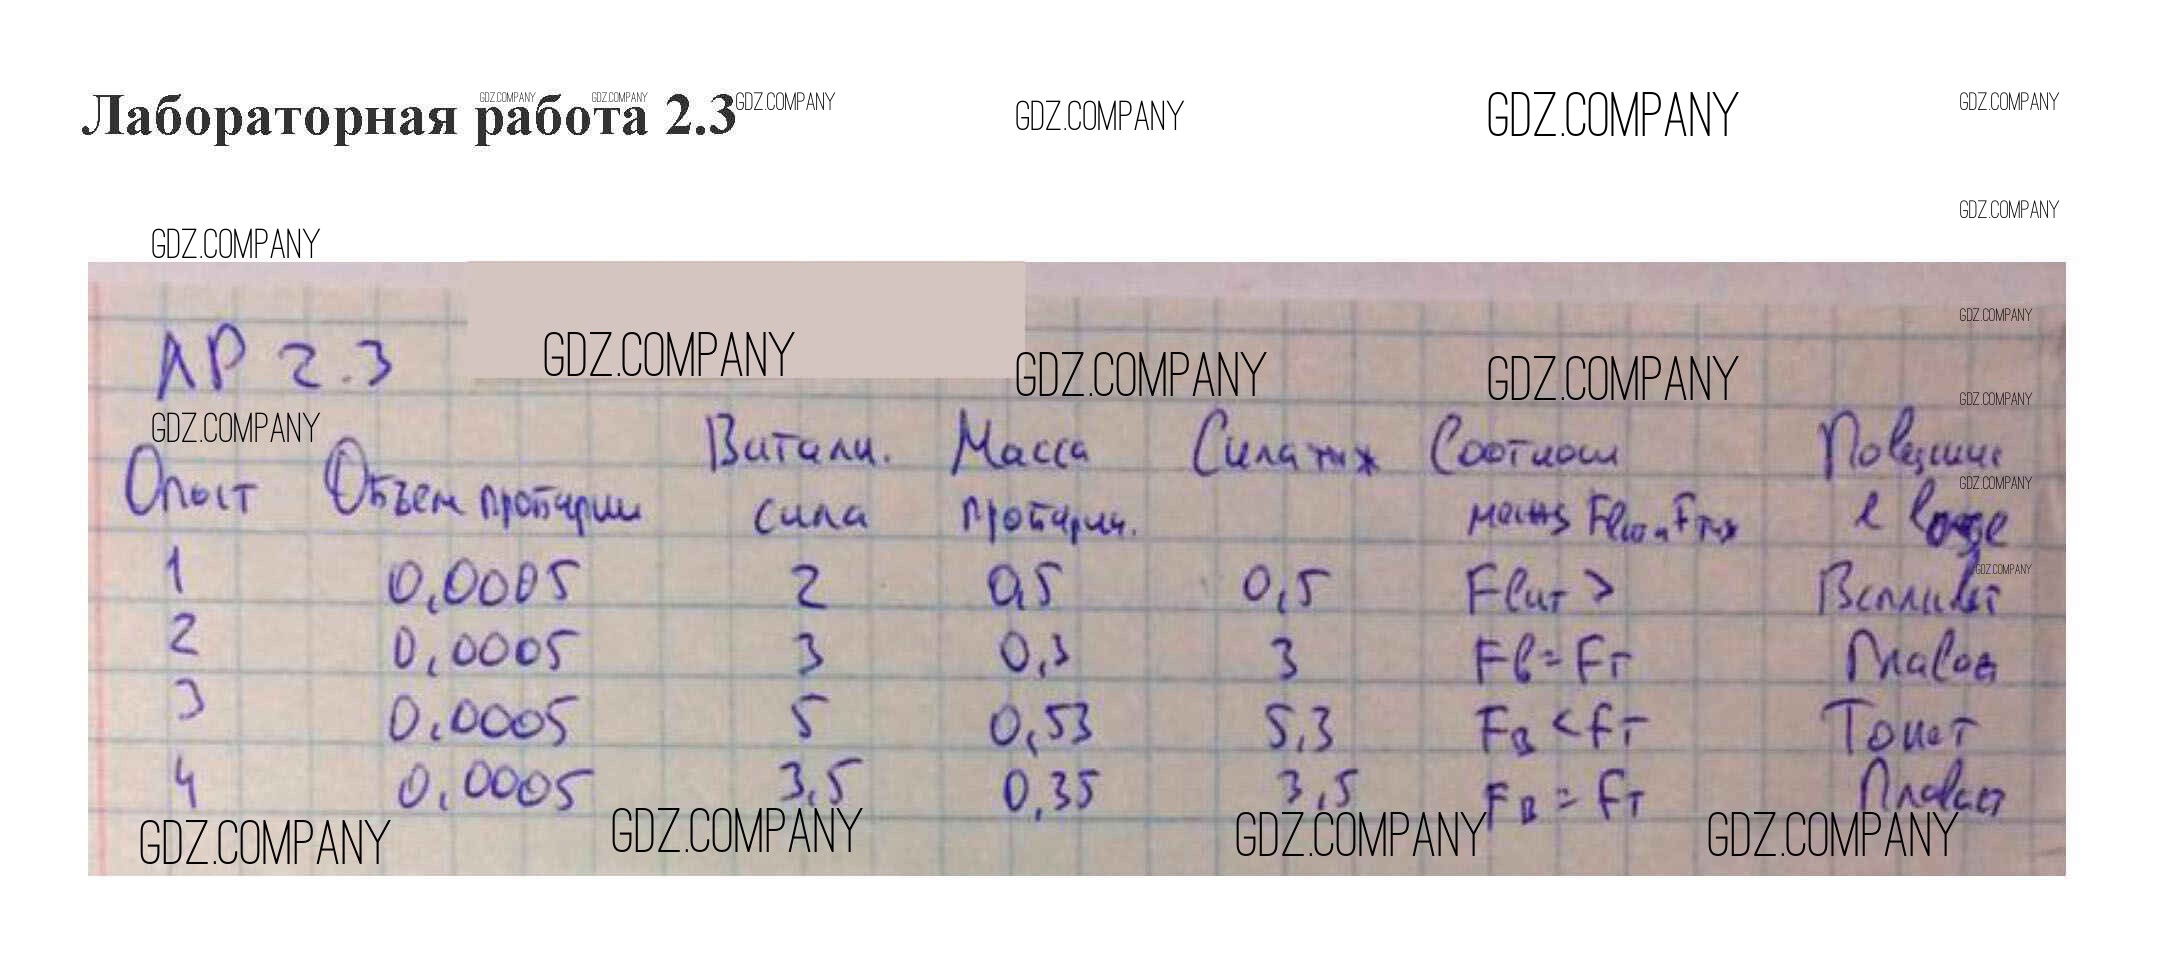 Лабораторная работа 2.3 GDZ.COMPANY GDZ.COMPANY GDZ.COMPANY GDZ.COMPANY GDZ.COMPANY GDZ.COMPANY
GDZ.COMPANY
GDZ.COMPANY
GDZ.COMPANY
ЛР 2.3 GDZ.COMPANY GDZ.COMPANY GDZ.COMPANY
GDZ.COMPANY
GDZ.COMPANY
Витали. Масса Сила тяж Соотнош
Опыт Объем сила
GDZ.COMPANY
1 0,0005 2 0,5 0,5 Fвит > Всплывет
GDZ.COMPANY
2 0,0005 3 0,3 3 Fв = Fт
3 0,0005 5 0,53 5,3 Fв < Fт Тонет
4 0,0005 3,5 0,35 3,5 Fв = Fт Плавает
GDZ.COMPANY GDZ.COMPANY GDZ.COMPANY GDZ.COMPANY